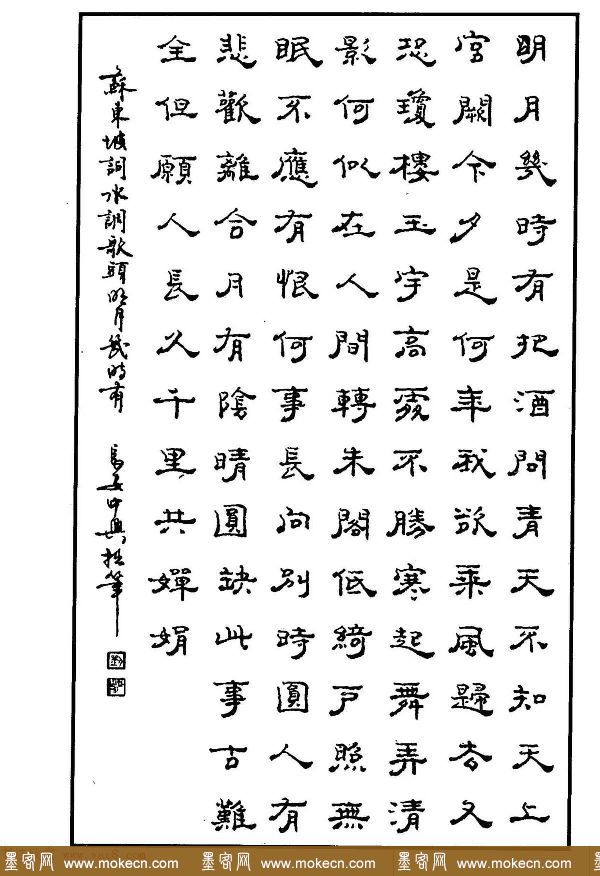 明月幾時有把酒問青天不知天上
宮闕今夕是何年我欲乘風歸去又
恐瓊樓玉宇高處不勝寒起舞弄清
影何似在人間轉朱閣低綺戶照無
眠不應有恨何事長向別時圓人有
悲歡離合月有陰晴圓缺此事古難
全但願人長久千里共嬋娟
蘇東坡詞水調歌頭明月幾時有 長安中興拙筆
墨客网 www.mokecn.com 墨客网 www.mokecn.com 墨客网 www.mokecn.com